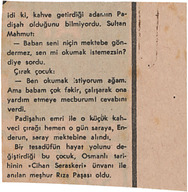 idi ki, kahve getirdiği adamın Pa-
dişah olduğunu bilmiyordu. Sultan
Mahmut:
— Baban seni niçin mektebe gön-
dermez, sen mi okumak istemezsin?
diye sordu.
Çırak çocuk:
— Ben okumak istiyorum ağam.
Ama babam çok fakir, çalışarak ona
yardım etmeye mecburum! cevabını
verdi.
Padişahın emri ile o küçük kah-
veci çırağı hemen o gün saraya, En-
derun, saray mektebine alındı,
Bir tesadüfün hayat yolunu de-
ğiştirdiği bu çocuk, Osmanlı tari-
hinin «Cihan Seraskeri» ünvanı ile
anılan meşhur Rıza Paşası oldu.